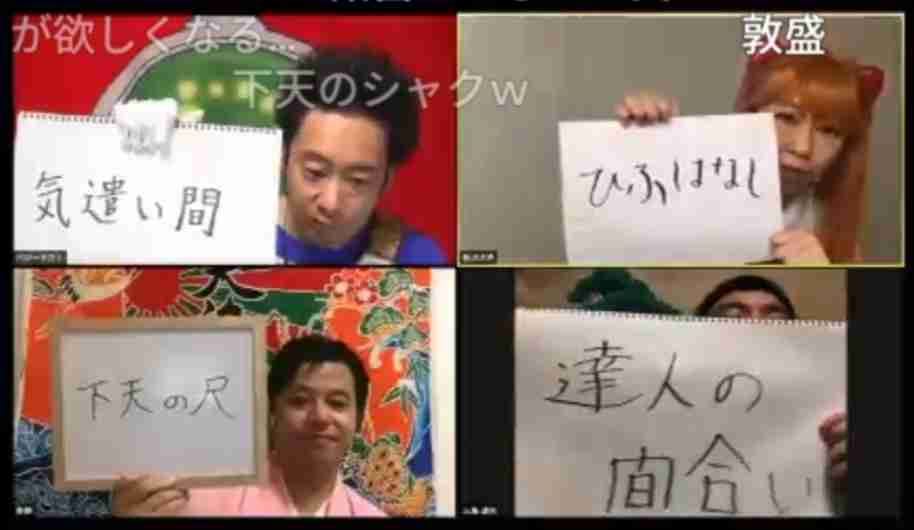 が欲しくなる...
敦盛
下天のシャクw
気遣い間
ひふはなし
下天の尺
達人の
間合い